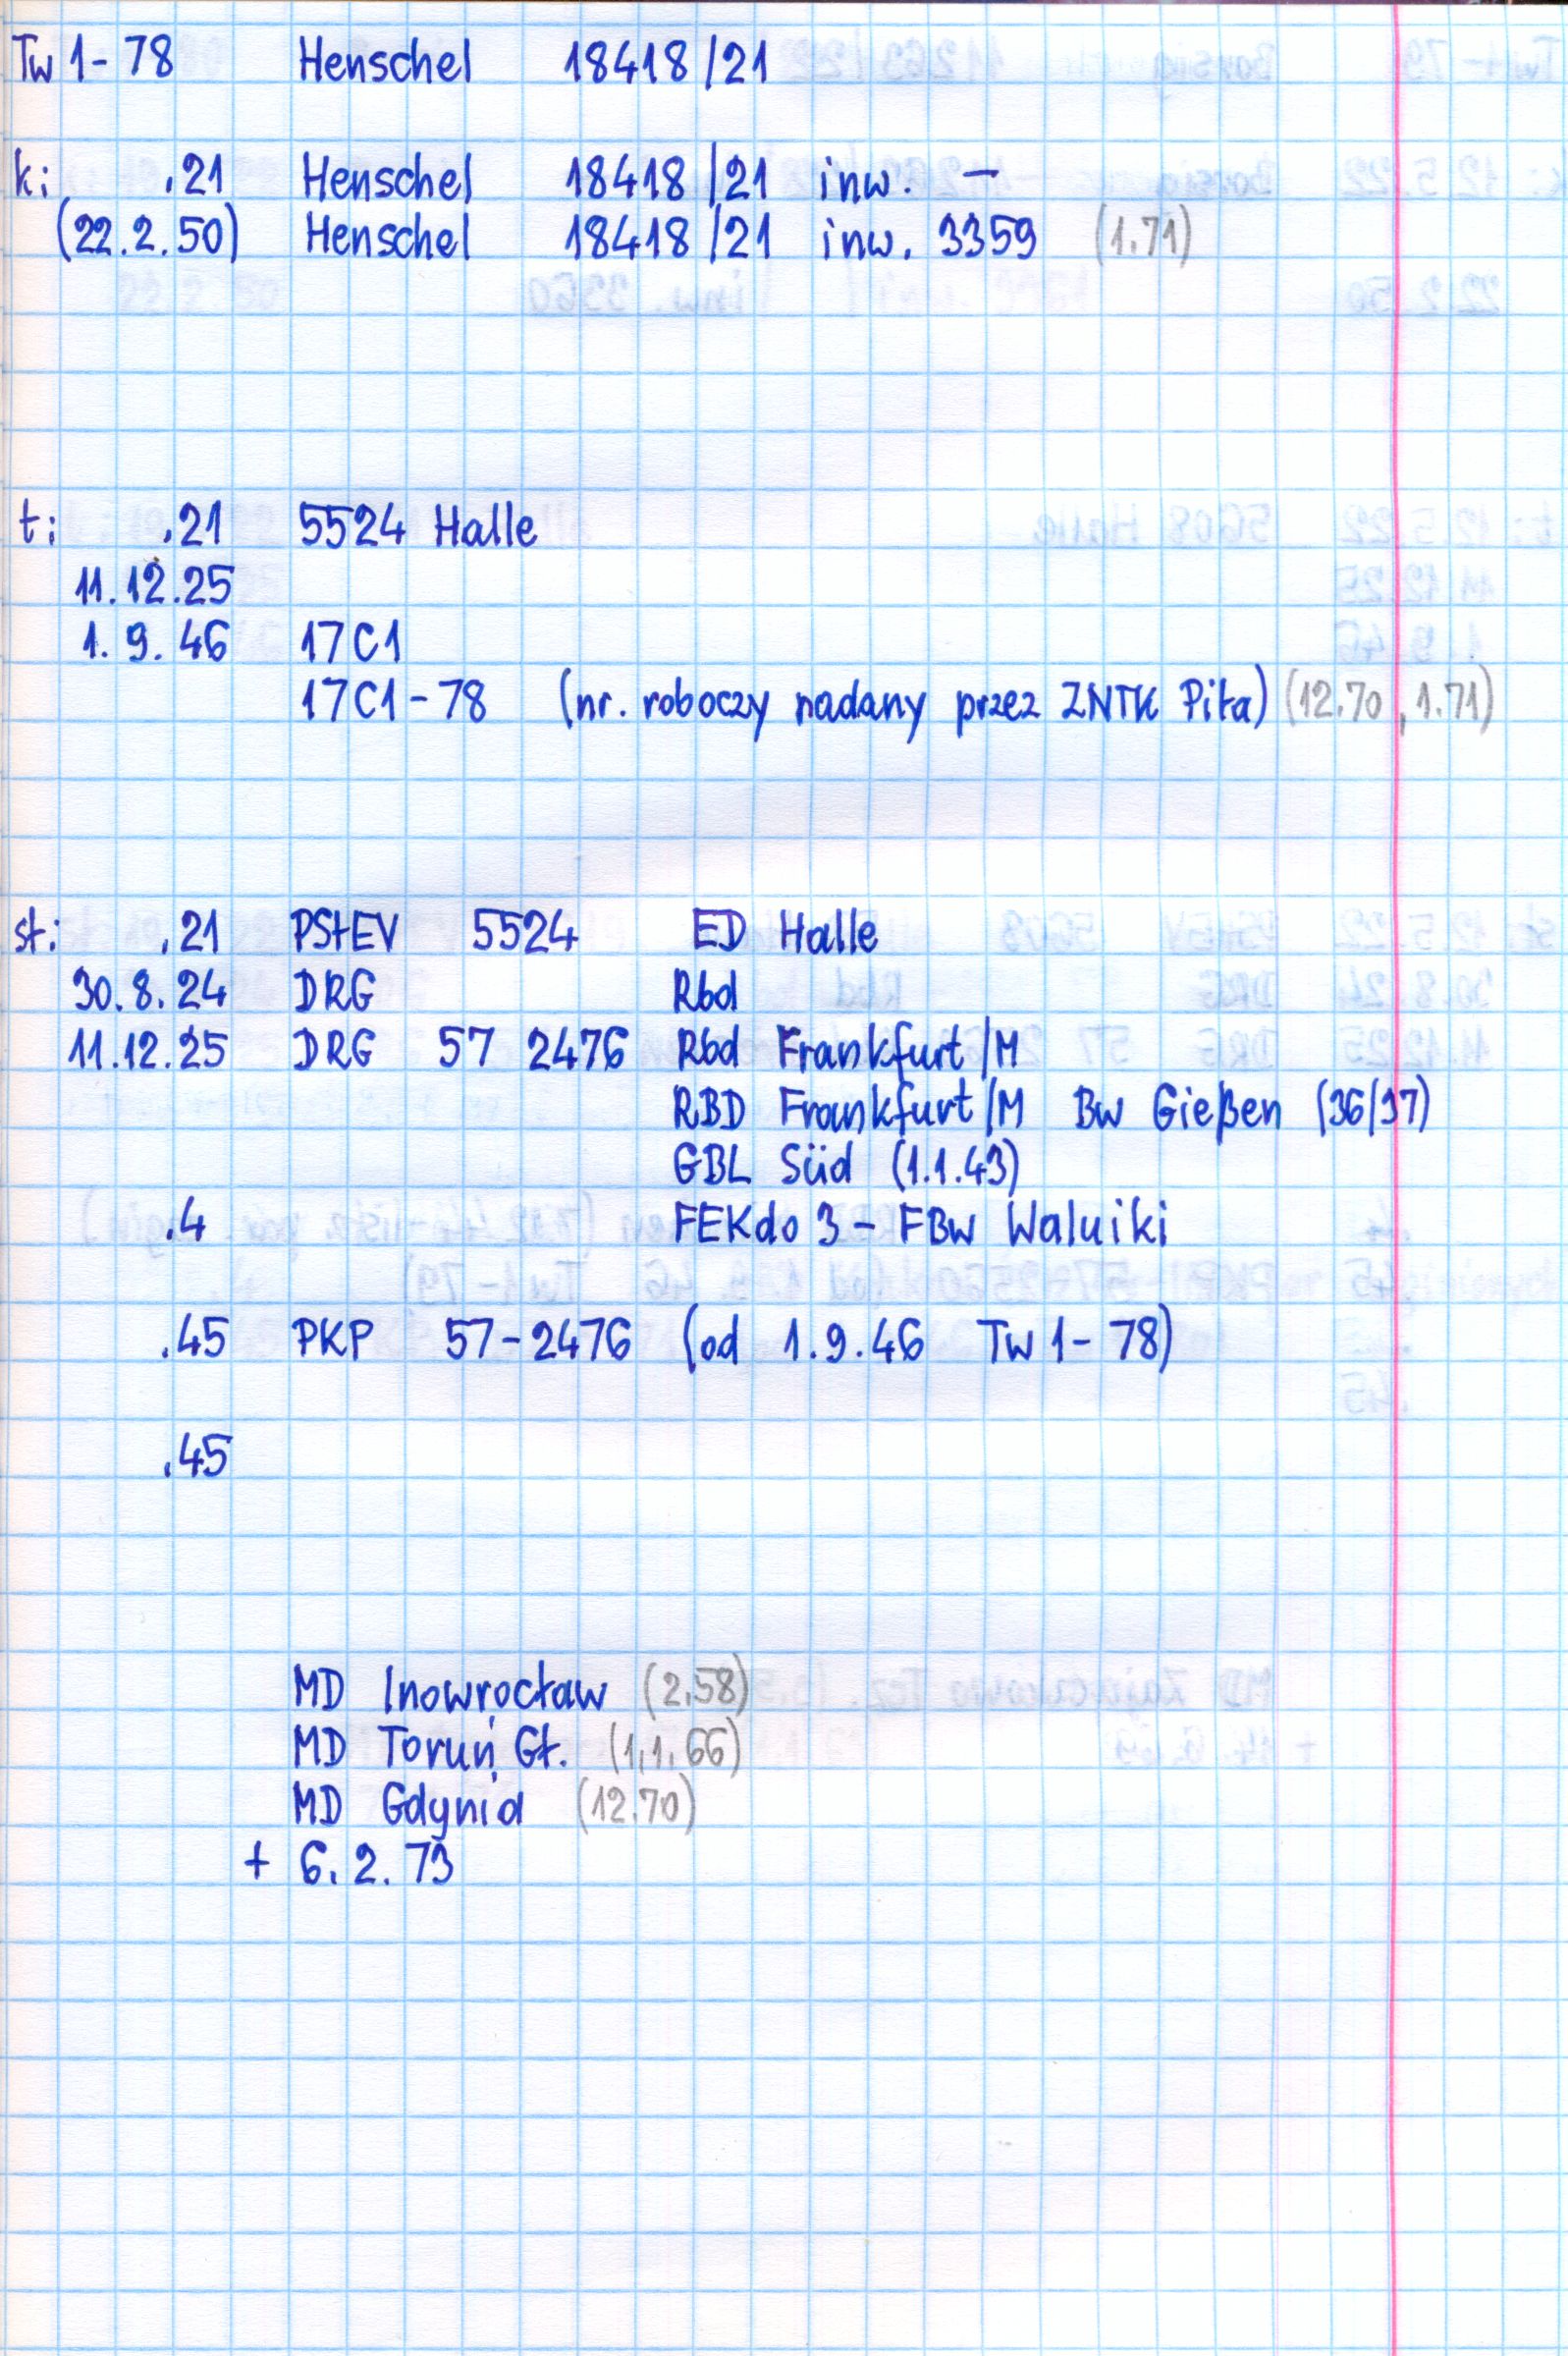 Tw 1-78 Henschel 18418/21
k: .21 Henschel 18418/21 inw. -
(22.2.50) Henschel 18418/21 inw. 3359 (1.71)
t: .21 5524 Halle
11.12.25
1.9.46 17C1
17C1-78 (nr. roboczy nadany przez ZNTK Piła) (12.70, 1.71)
st: .21 PStEV 5524 ED Halle
30.8.24 DRG Rbd
11.12.25 DRG 57 2476 Rbd Frankfurt/M
RBD Frankfurt/M Bw Gießen (36/37)
GBL Süd (1.1.43)
.4 FEKdo 3 - FBw Waluiki
.45 PKP 57-2476 (od 1.9.46 Tw 1-78)
.45
MD Inowrocław (2.58)
MD Toruń Gł. (1.1.66)
MD Gdynia (12.70)
+ 6.2.73